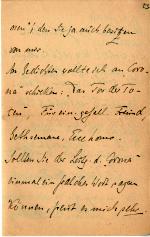 23
men; den Sie ja auch besitzen
von mir.
An Gedichten wollte ich an Coro-
na schicken: „Das Tor des To-
des“. Für ein gefall. Freund,
Gethsemane, Ecce homo.
Sollten Sie der Leitg. d. Corona
einmal ein solches Wort sagen
können, freut es mich sehr.